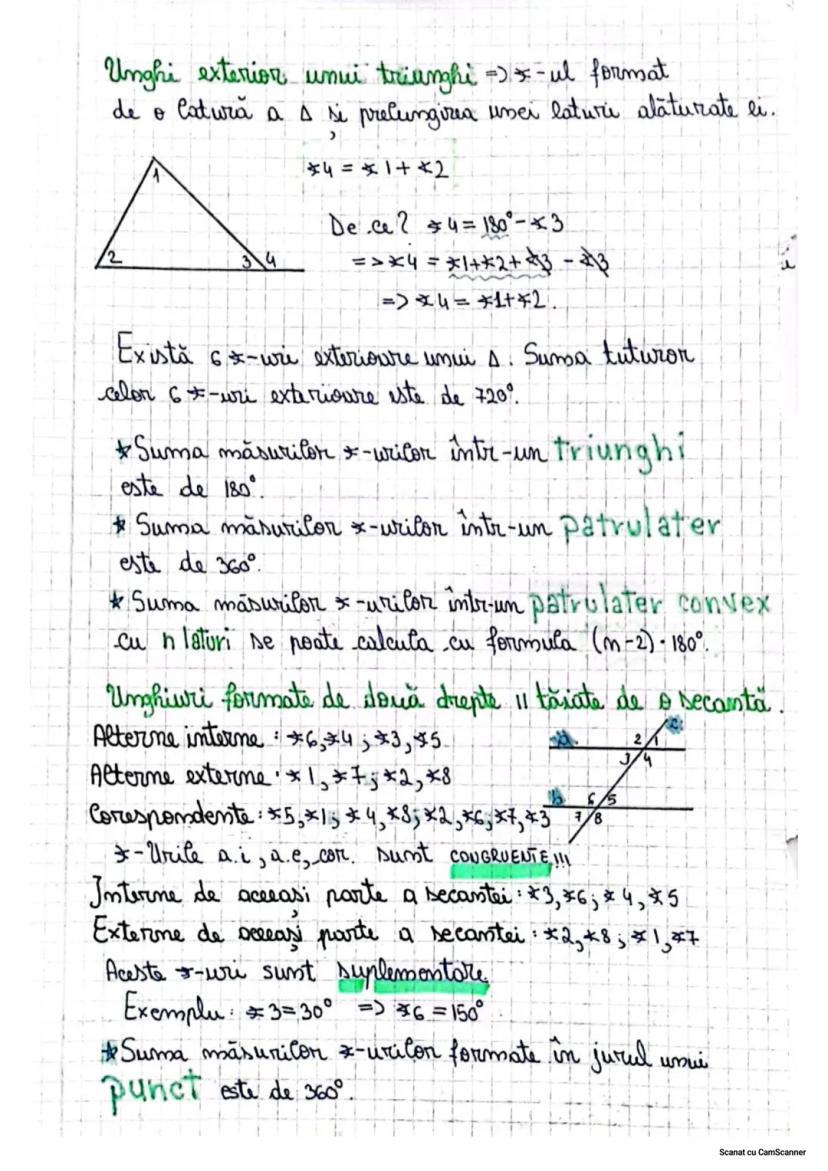 Unghi exterior unui triunghi => ∢-ul format
de o latură a Δ și prelungirea unei laturi alăturate ei.
∢4 = ∢1 + ∢2
1
De ce? ∢4 = 180° - ∢3
2 3 4
=> ∢4 = ∢1+∢2+∢3 - ∢3
=> ∢4 = ∢1+∢2.
Există 6 ∢-uri exterioare unui Δ. Suma tuturor
celor 6 ∢-uri exterioare este de 720°.
★ Suma măsurilor ∢-urilor într-un triunghi
este de 180°.
★ Suma măsurilor ∢-urilor într-un patrulater
este de 360°.
★ Suma măsurilor ∢-urilor într-un patrulater convex
cu n laturi se poate calcula cu formula (n-2)·180°.
Unghiuri formate de două drepte || tăiate de o secantă.
Alterne interne: ∢6,∢4; ∢3,∢5
Alterne externe: ∢1,∢7; ∢2,∢8
Corespondente: ∢5,∢1; ∢4,∢8; ∢2,∢6; ∢7,∢3
a
b
c
2 1
3 4
6 5
7 8
∢-Urile a.i, a.e, cor. sunt CONGRUENTE!!!
Interne de aceeași parte a secantei: ∢3,∢6; ∢4,∢5
Externe de aceeași parte a secantei: ∢2,∢8; ∢1,∢7
Aceste ∢-uri sunt suplementare
Exemplu: ∢3=30° => ∢6=150°
★ Suma măsurilor ∢-urilor formate în jurul unui
punct este de 360°.
Scanat cu CamScanner